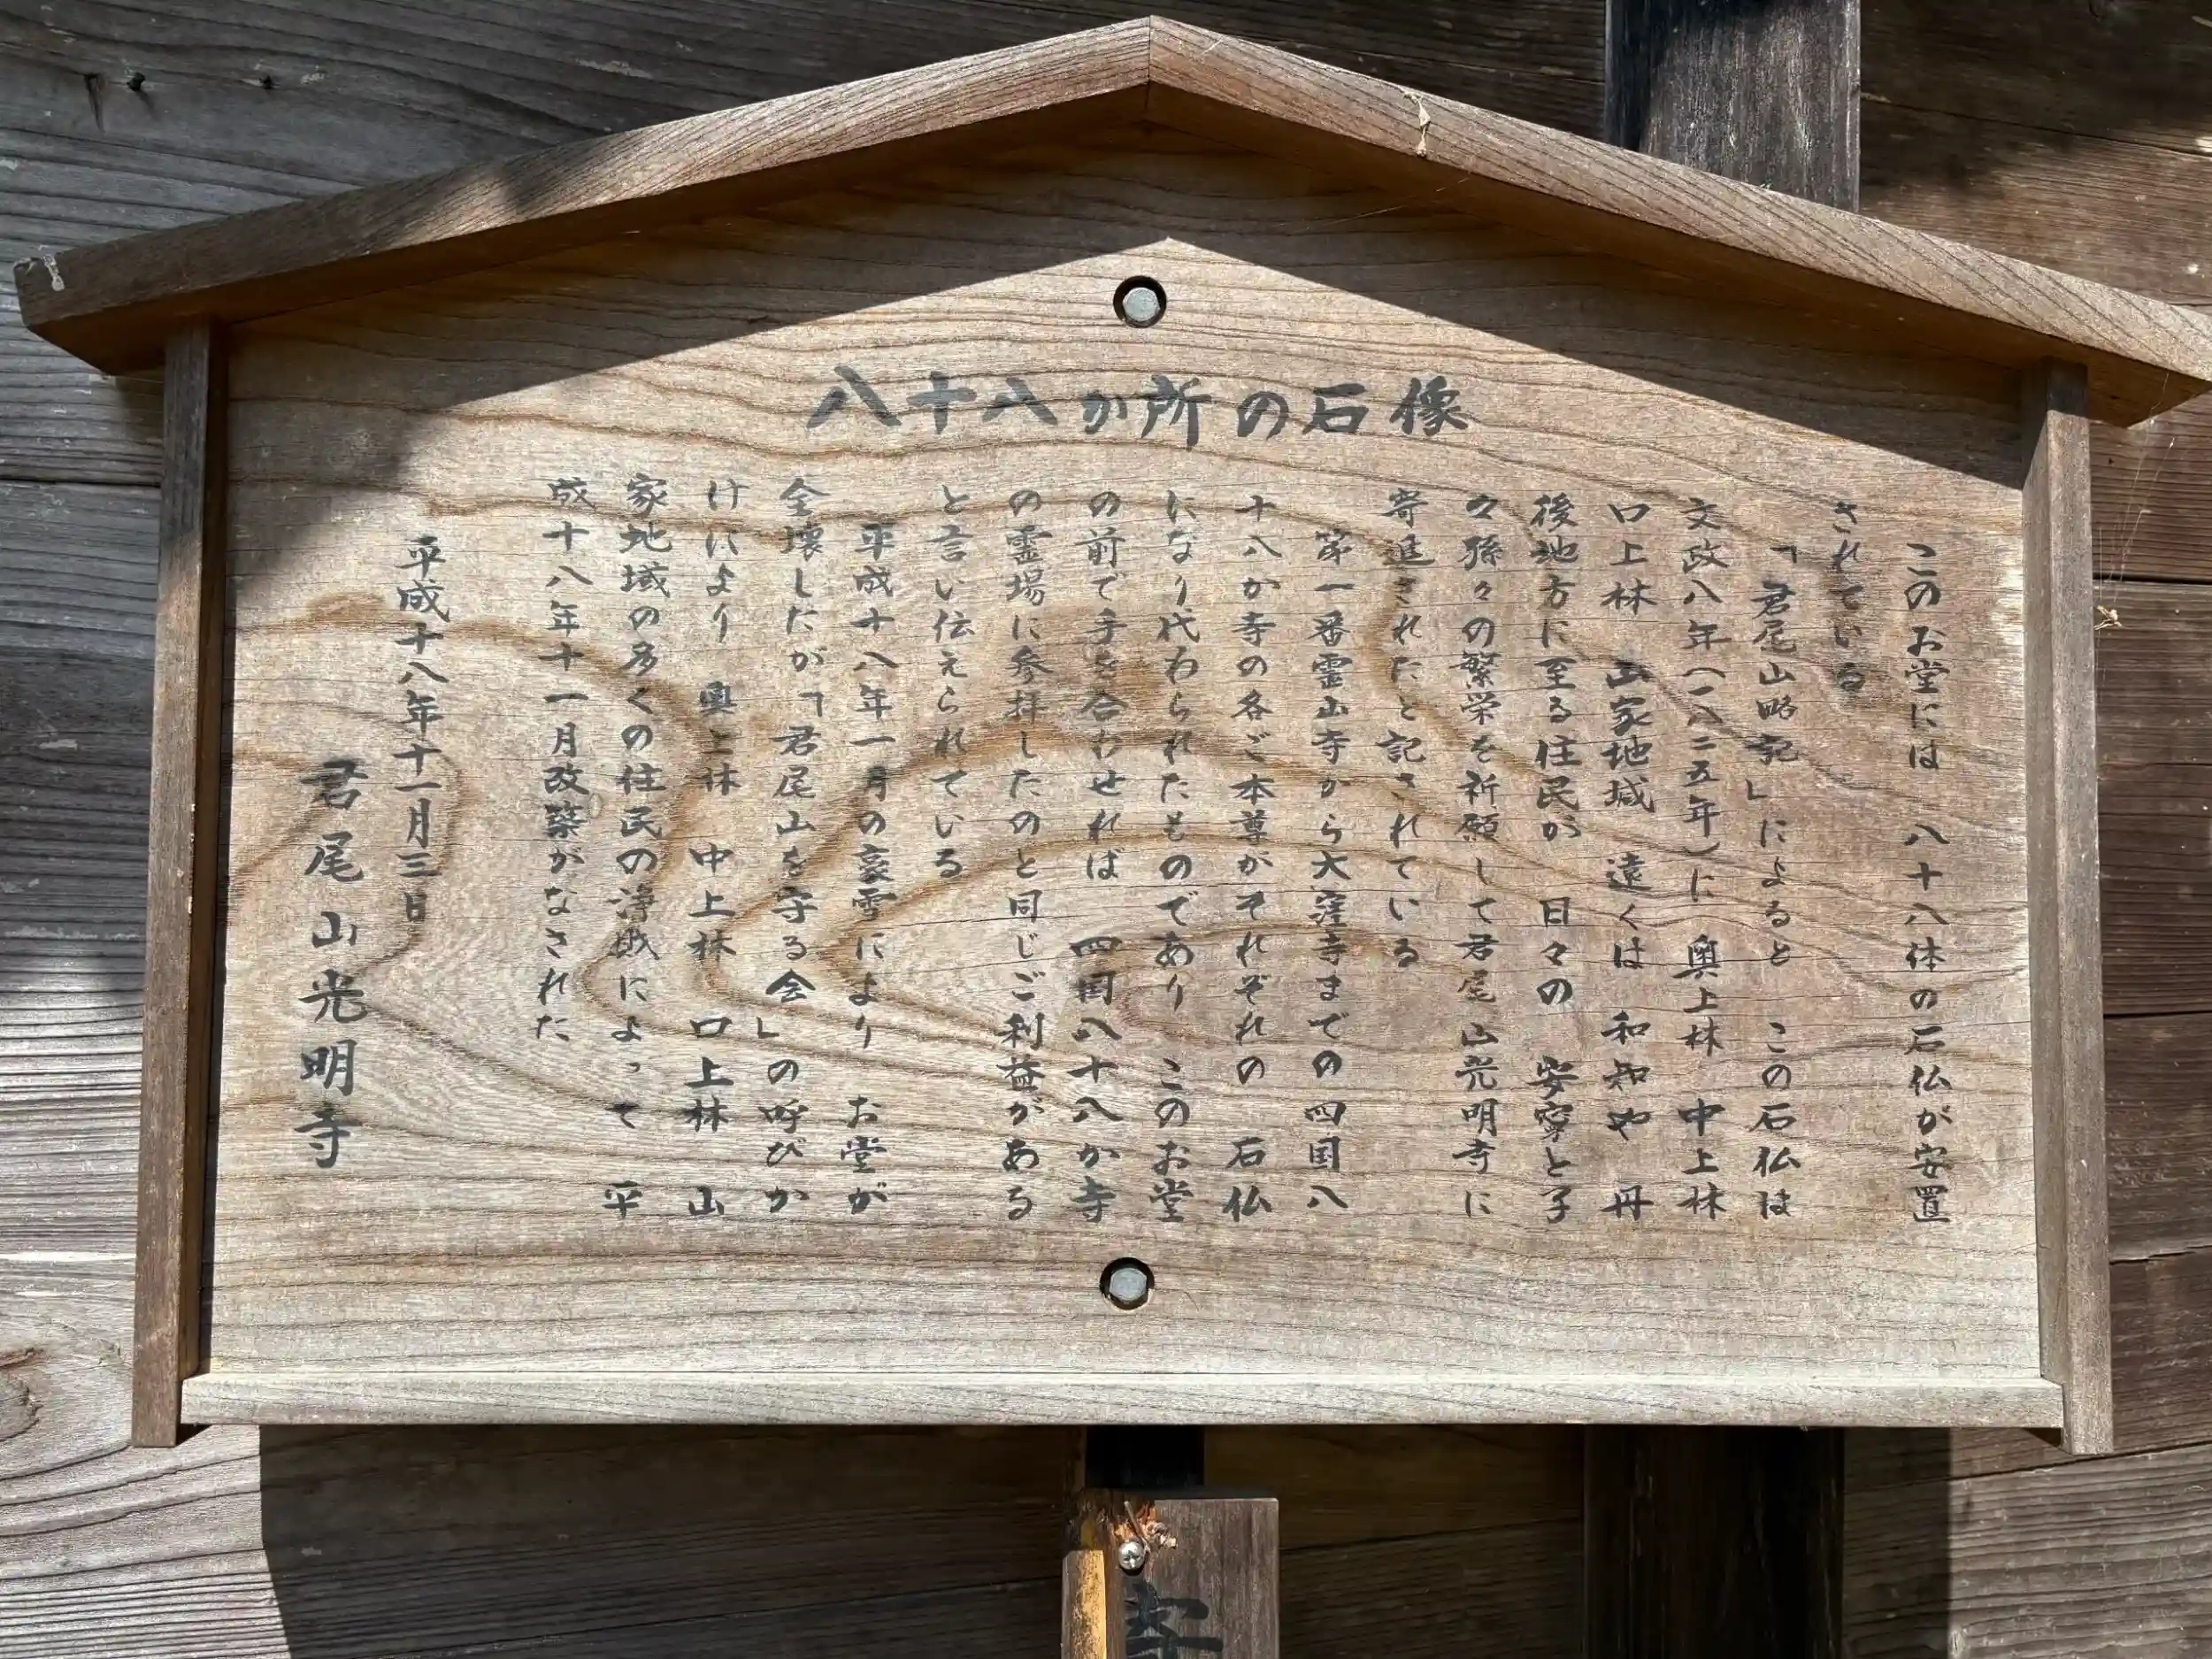 八十八か所の石像
このお堂には　八十八体の石仏が安置
されている
「君尾山略記」によると　この石仏は
文政八年（一八二五年）に　奥上林　中上林
口上林　山家地域　遠くは　和知や　丹
後地方に至る住民が　日々の　安寧と子
々孫々の繁栄を祈願して君尾山光明寺に
寄進されたと記されている
第一番霊山寺から大窪寺までの四国八
十八か寺の各ご本尊がそれぞれの　石仏
になり代わられたものであり　このお堂
の前で手を合わせれば　四国八十八か寺
の霊場に参拝したのと同じご利益がある
と言い伝えられている
平成十八年一月の豪雪により　お堂が
全壊したが「君尾山を守る会」の呼びか
けにより　奥上林　中上林　口上林　山
家地域の多くの住民の浄財によって　平
成十八年十一月改築がなされた
平成十八年十一月三日
君尾山光明寺
寄